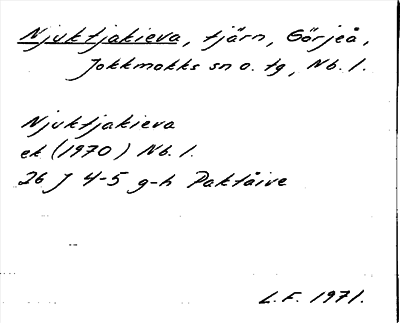 Njuktjakieva, tjärn, Görjeå,
Jokkmokks sn o. tg, Nb. l.
Njuktjakieva
ek (1970) Nb. l.
26 J 4-5 g-h Paktåive
L.F. 1971.